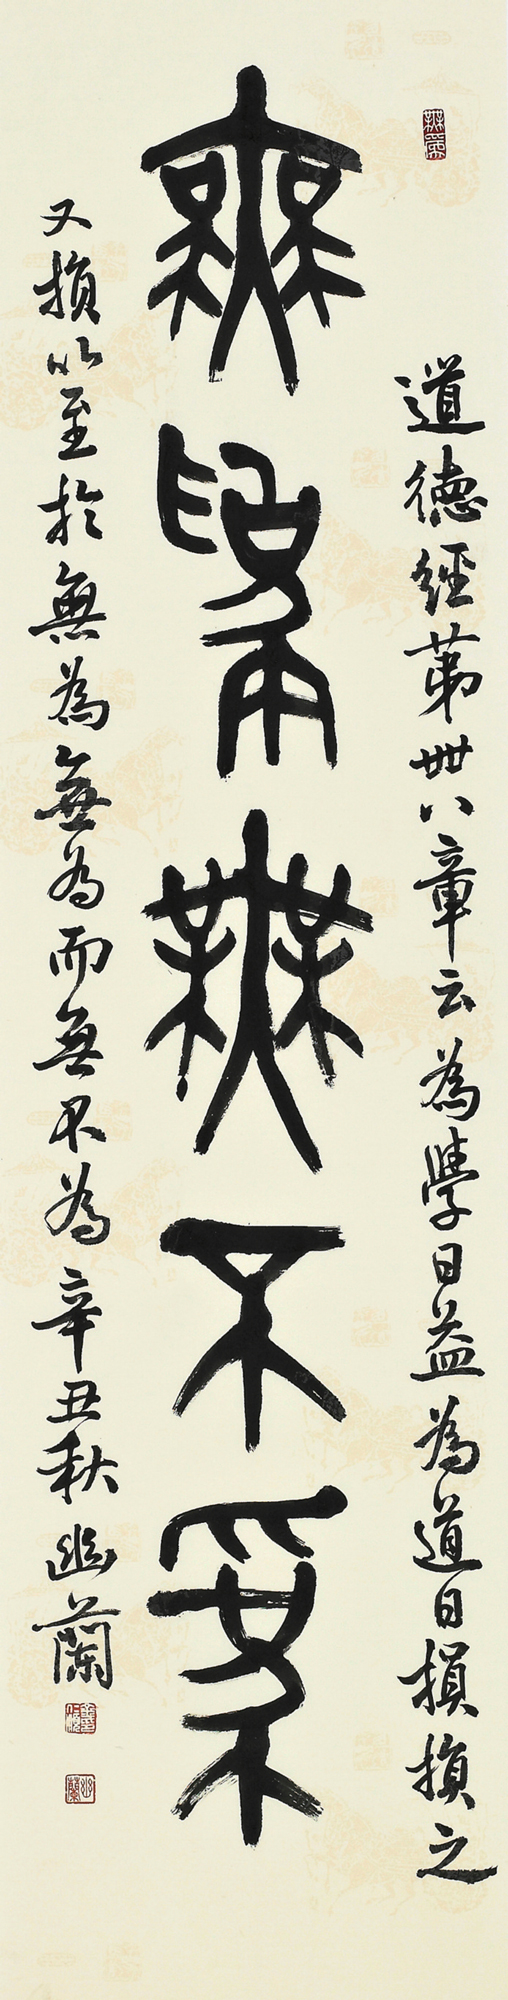 道德經第卌八章云為學日益為道日損損之
無為無不為
又損以至於無為無為而無不為辛丑秋幽蘭